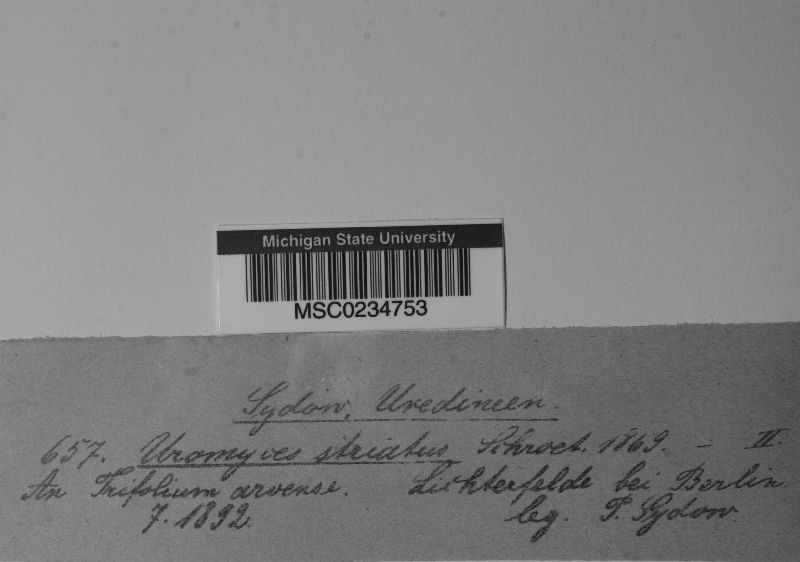 Michigan State University
MSC0234753
Sydow, Uredineen.
657. Uromyces striatus Schroet. 1869. - II.
An Trifolium arvense. Lichterfelde bei Berlin
7. 1892. leg. P. Sydow.